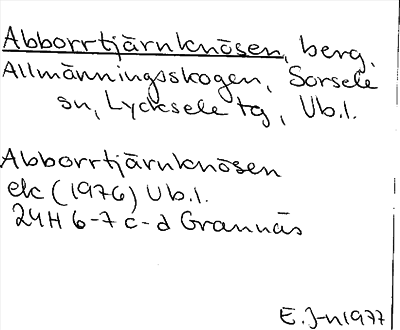 Abborrtjärnknösen, berg,
Allmänningsskogen, Sorsele
sn, Lycksele tg, Vb.l.
Abborrtjärnknösen
ek (1976) Vb.l.
24H 6-7 c-d Grannäs
E. J-n 1977